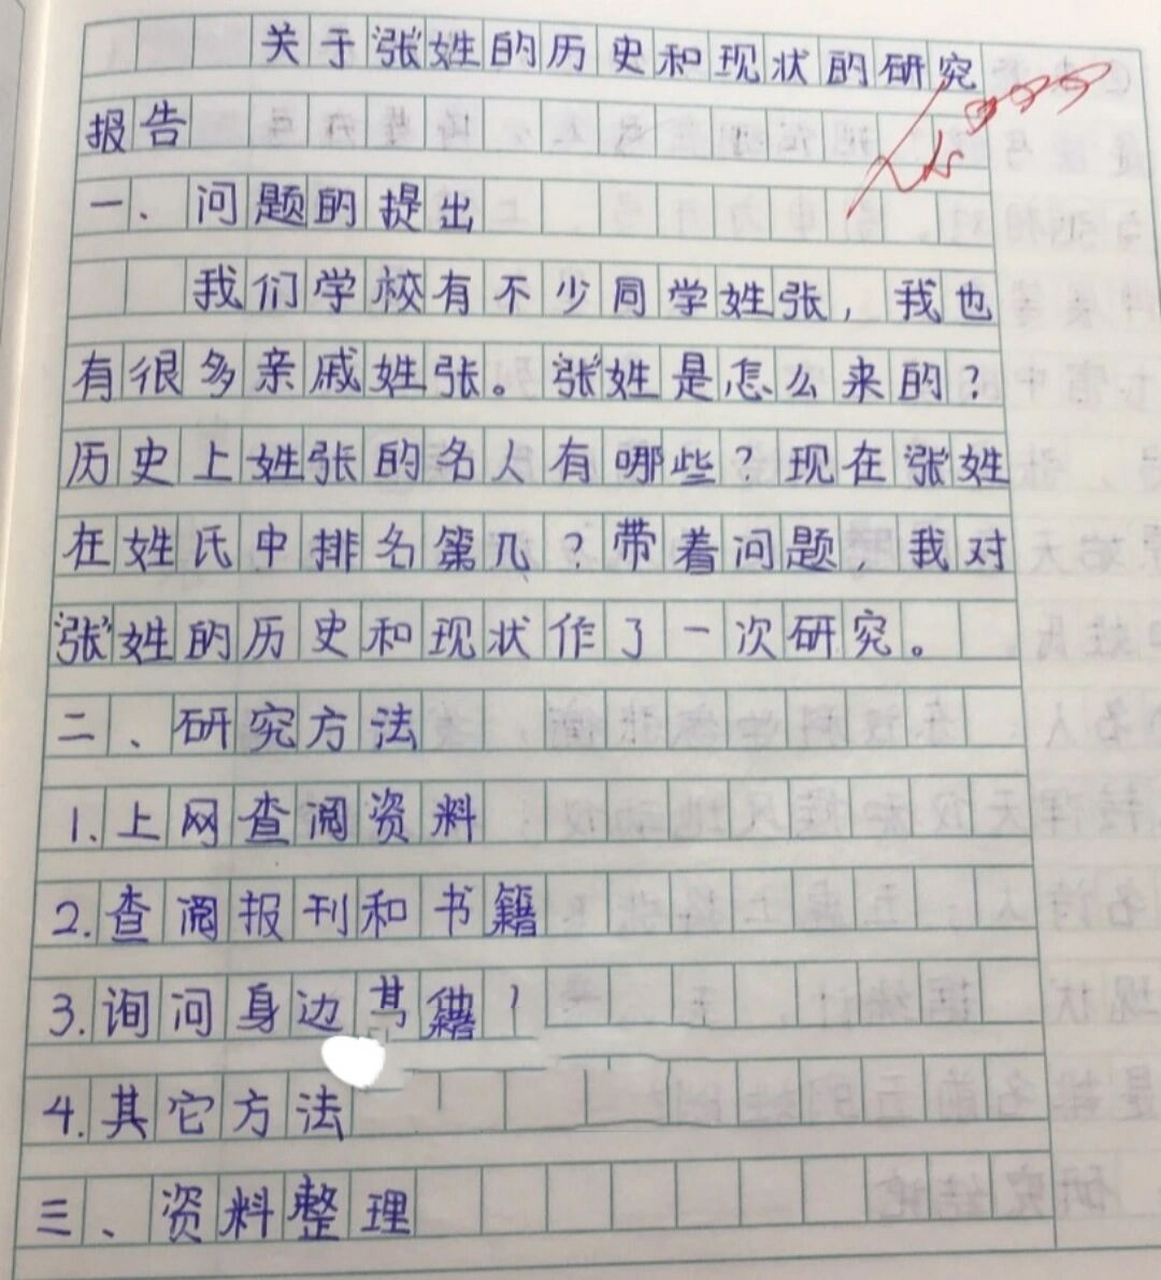 关于"张"姓的历史和现状的研究
报告
一、问题的提出
我们学校有不少同学姓张，我也
有很多亲戚姓张。"张"姓是怎么来的？
历史上姓张的名人有哪些？现在"张"姓
在姓氏中排名第几？带着问题，我对
"张"姓的历史和现状作了一次研究。
二、研究方法
1.上网查阅资料
2.查阅报刊和书籍
3.询问身边
4.其它方法
三、资料整理